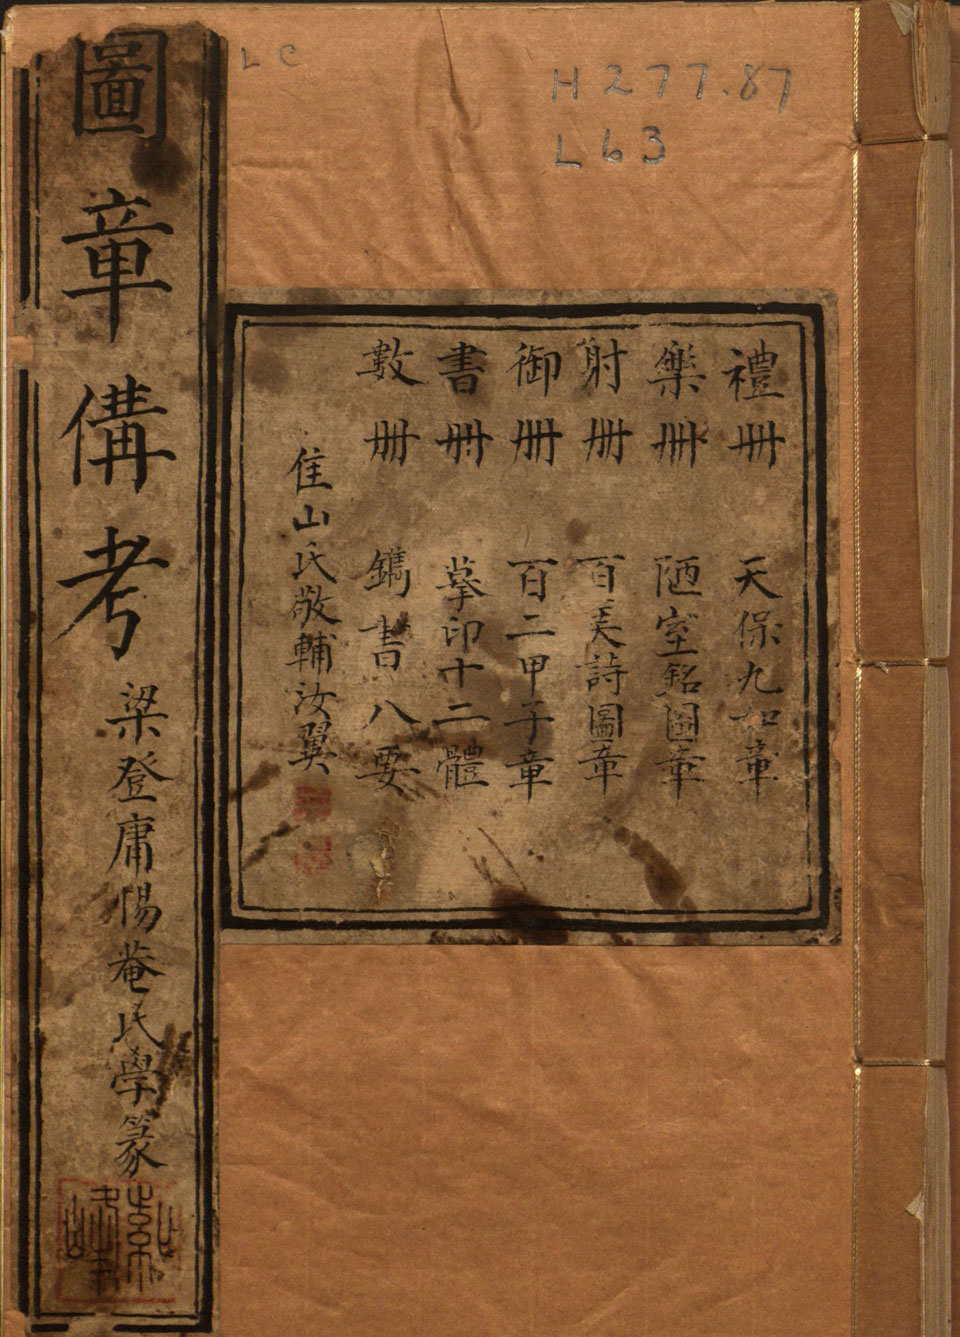 LC
H277.87
L63
圖章備考
梁登庸惕菴氏學篆
禮冊 天保九如章
樂冊 陋室銘圖章
射冊 百美詩圖章
御冊 百二甲子章
書冊 摹印十二體
數冊 鐫書八要
隹山氏敬輔汝翼